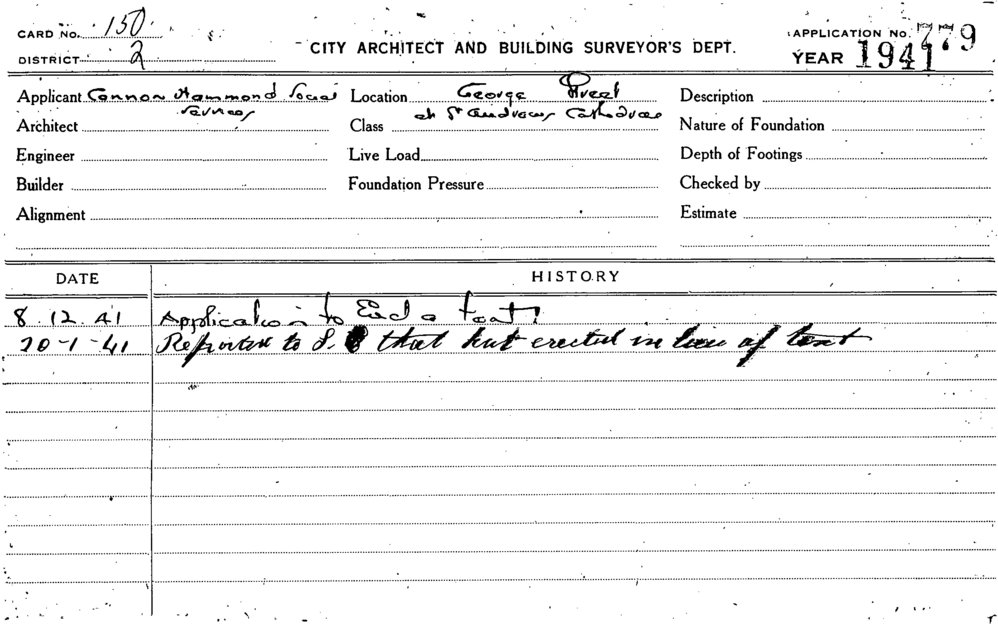 CARD NO. 150.
APPLICATION NO. 779
CITY ARCHITECT AND BUILDING SURVEYOR'S DEPT.
DISTRICT 2
YEAR 1941
Applicant Cannon Hammond Social Services
Location George Street at St Andrews Cathedral
Description
Architect
Class
Nature of Foundation
Engineer
Live Load
Depth of Footings
Builder
Foundation Pressure
Checked by
Alignment
Estimate
DATE
HISTORY
8.12.41 Application to a tent
20-1-41 Reported to that hut erected in lieu of tent